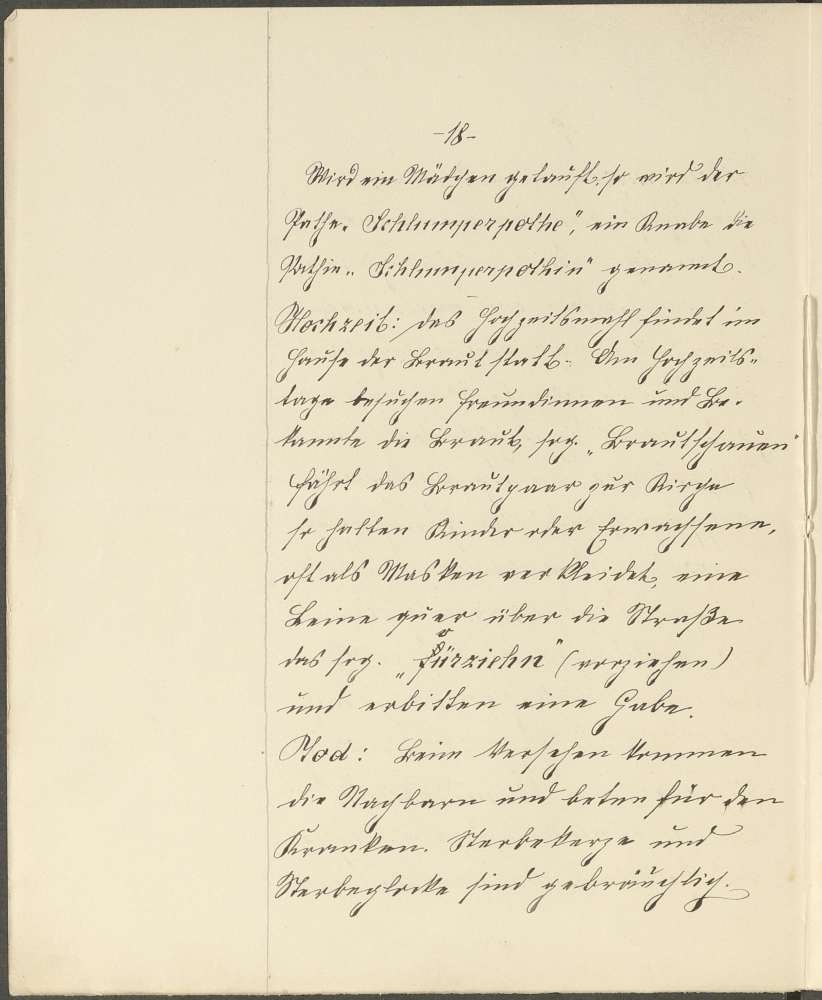 -18-
Wird ein Mädchen getauft, so wird der
Pathe „Schlumperpothe", ein Knabe die
Pathin „Schlumperpothin" genannt.
Hochzeit: das Hochzeitsmahl findet im
Hause der Braut statt. Am Hochzeits-
tage besuchen Freundinnen und Be-
kannte die Braut, sog. „Brautschauen"
Fährt das Brautpaar zur Kirche
so halten Kinder oder Erwachsene,
oft als Masken verkleidet, eine
Leine quer über die Straße
das sog. „fürziehn" (vorziehen)
und erbitten eine Gabe.
Tod: Beim Versehen kommen
die Nachbarn und beten für den
Kranken. Sterbekerze und
Sterbeglocke sind gebräuchlich.